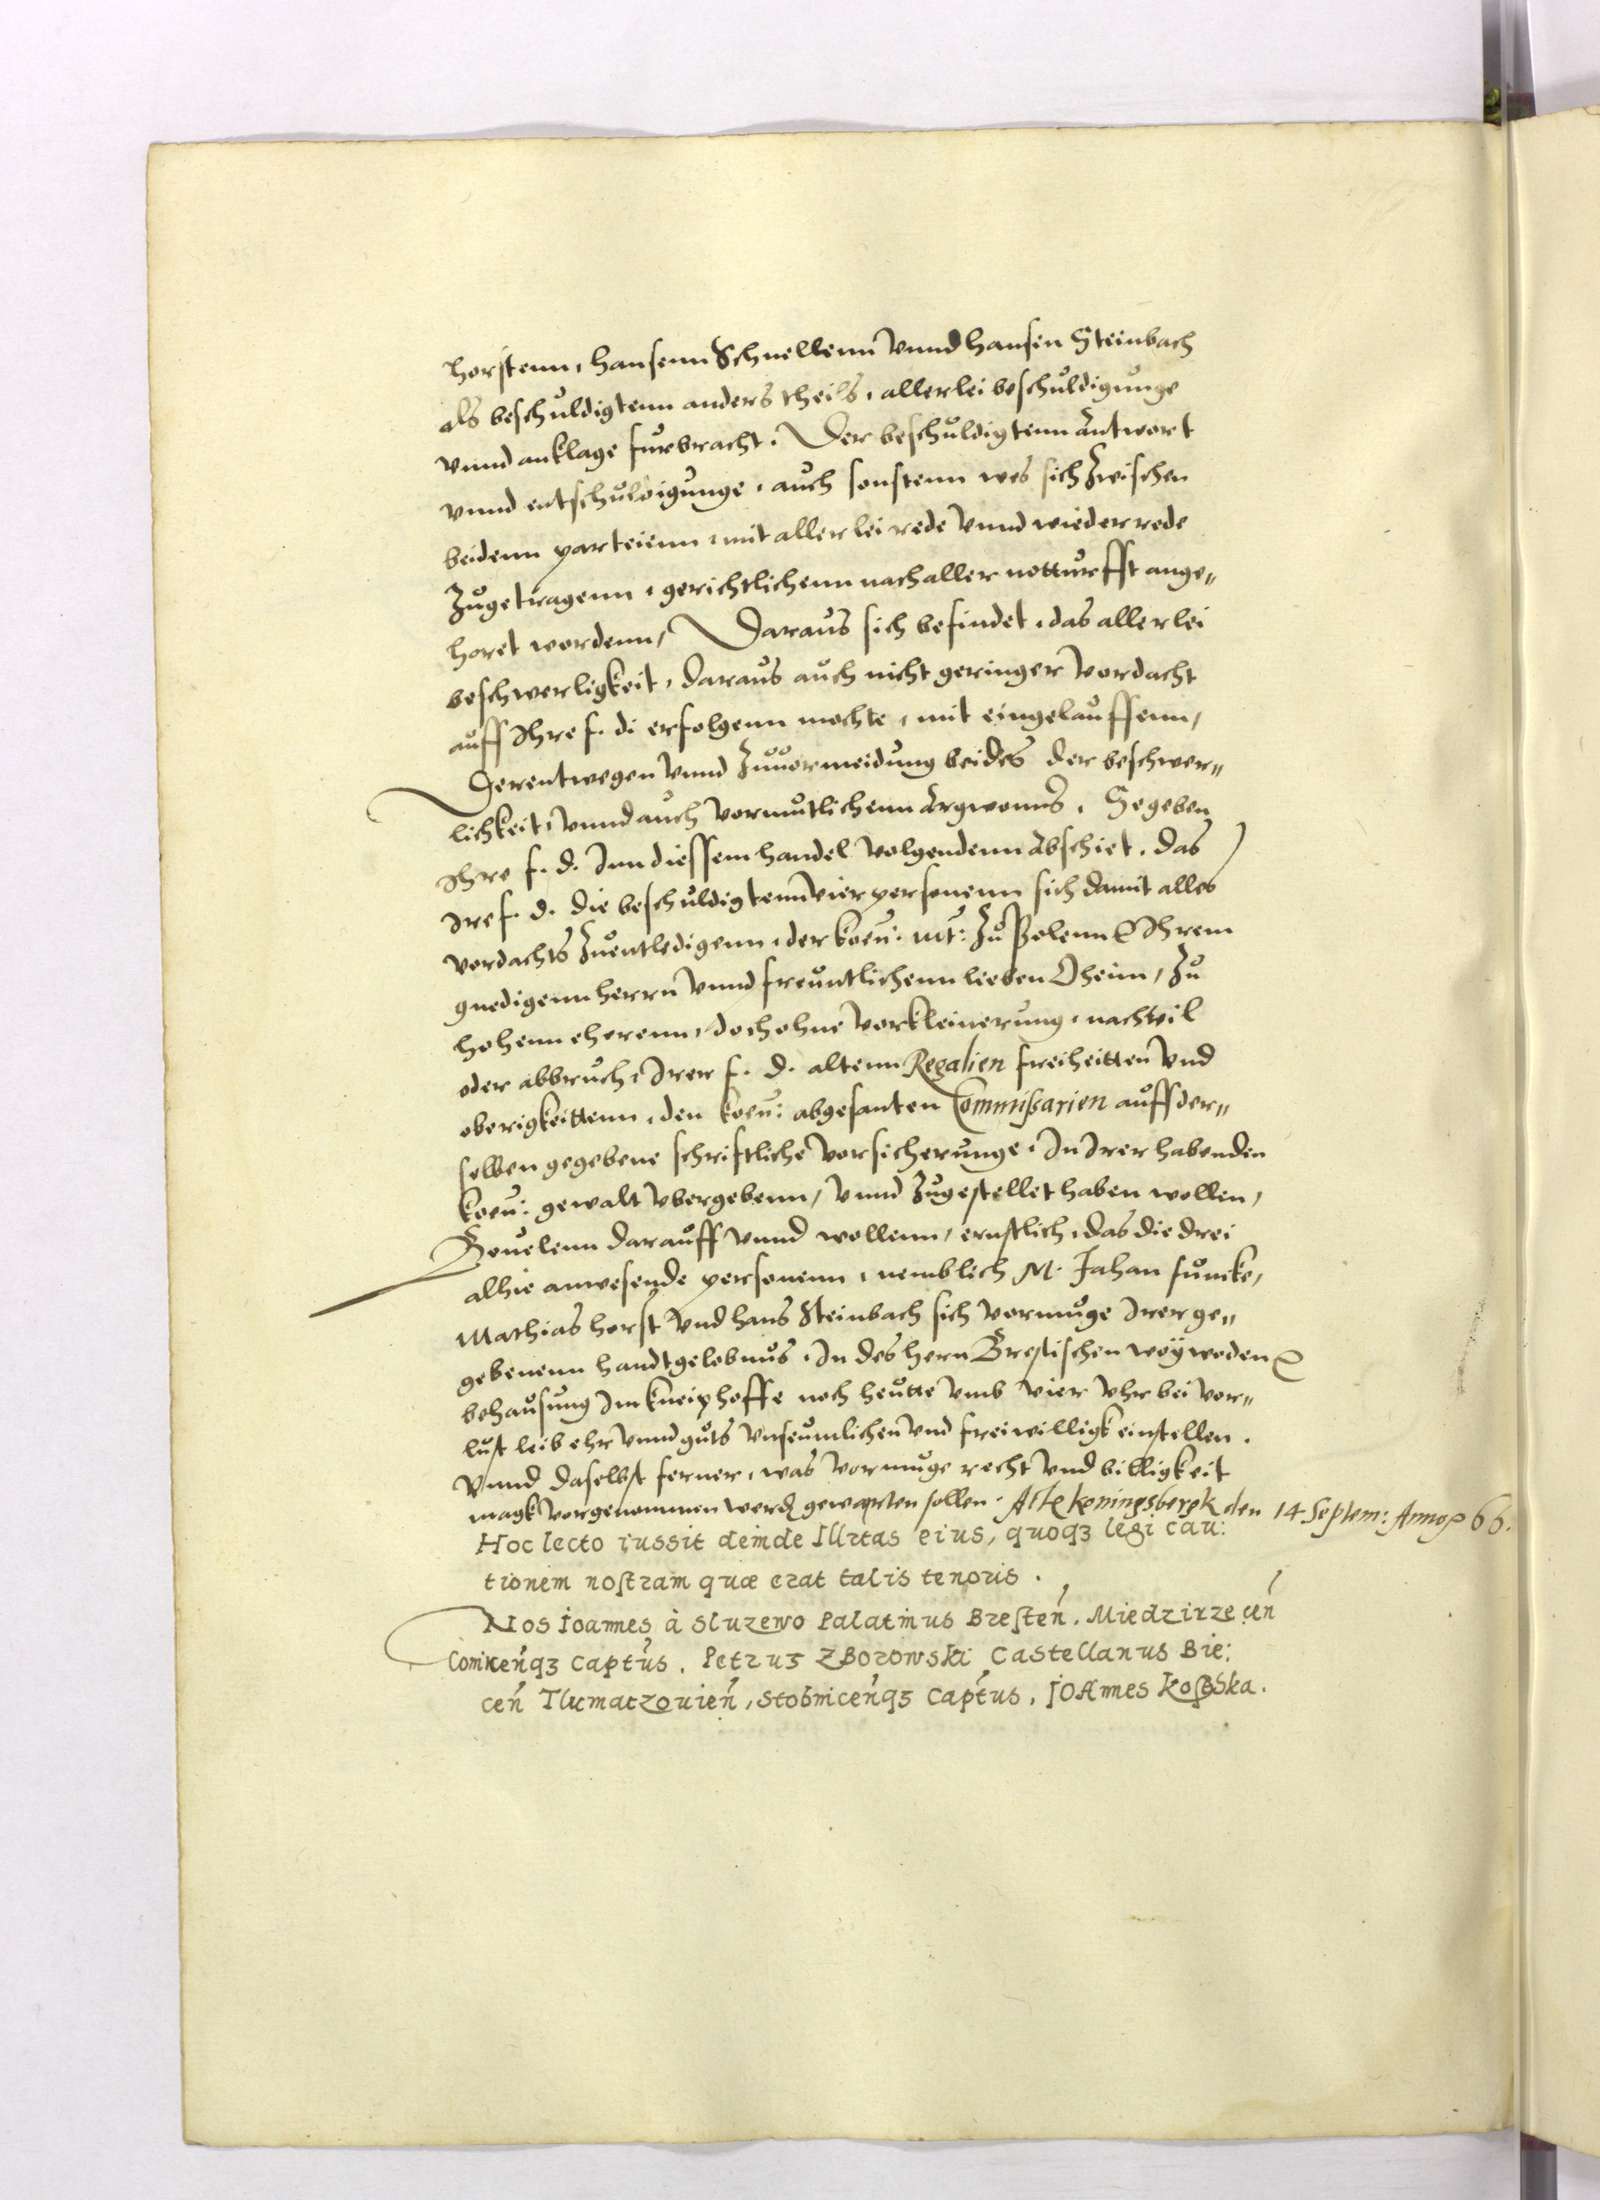 Horstenn, Hansenn Schnellenn vnnd Hansen Steinbach
als beschuldigtenn anders theils, allerlei beschuldigunge
vnnd anklage furbracht. Der beschuldigtenn Antwort
vnnd entschuldigunge, auch sonstenn wes sich zwischen
beidenn parteienn, mit allerlei rede vnnd wiederrede
zugetragenn, gerichtlichenn nach aller notturfft ange„
horet wordenn, Daraus sich befindet, das allerlei
beschwerligkeit, daraus auch nicht geringer vordacht
auff Ihre f. d. erfolgenn mochte, mit eingelauffenn,
Derentwegen vnnd zuuormeidung beides der beschwer„
lichkeit, vnnd auch vormutlichenn Argwonns, Gegeben
Ihre f. d. Inn diessem handel volgendenn Abschiet, das
Ire f. d. die beschuldigtenn vier personenn sich damit alles
vordachts zuentledigenn, der koen: mt: zu Polenn Ihrem
gnedigenn herrn vnnd freuntlichenn lieben Oheim, zu
hohenn eherenn, doch ohne vorkleinerung, nachteil
oder abbruch, Irer f. d. altenn Regalien freiheitten vnd
oberigkeittenn, den koen: abgesanten Commißarien auff der„
selben gegebene schriftliche vorsicherunge, In Irer habenden
koen: gewalt vbergebenn, vnnd zugestellet haben wollen,
Beuelenn darauff vnnd wollenn, ernstlich, das die drei
alhie anwesende personenn, nemblich M. Jahan funcke,
Mathias horst vnd hans Steinbach sich vormuge Irer ge„
gebenenn handtgelobnus, In des hern Brestischen woyweden
behausung Im kneiphoffe noch heutte vmb vier vhr bei vor„
lust leib ehr vnnd guts vnseumlichen vnd freiwilligk einstellen.
Vnnd daselbst ferner, was vormuge recht vnd billigkeit
magk vorgenommen werden gewarten sollen. Alte koningsbergk den 14 Septem: Anno 66.
Hoc lecto iussit deinde Illrtas eius, quoqꝫ legi cau:
tionem nostram quæ erat talis tenoris.
Nos Ioannes à Sluzewo Palatinus Bresteñ. Miedzirzeceñ
Coninenqꝫ Captus. Petrus Zborowski Castellanus Bie:
ceñ Tlumaczouieñ, Stobniceñqꝫ Captus, Joannes Kostka.